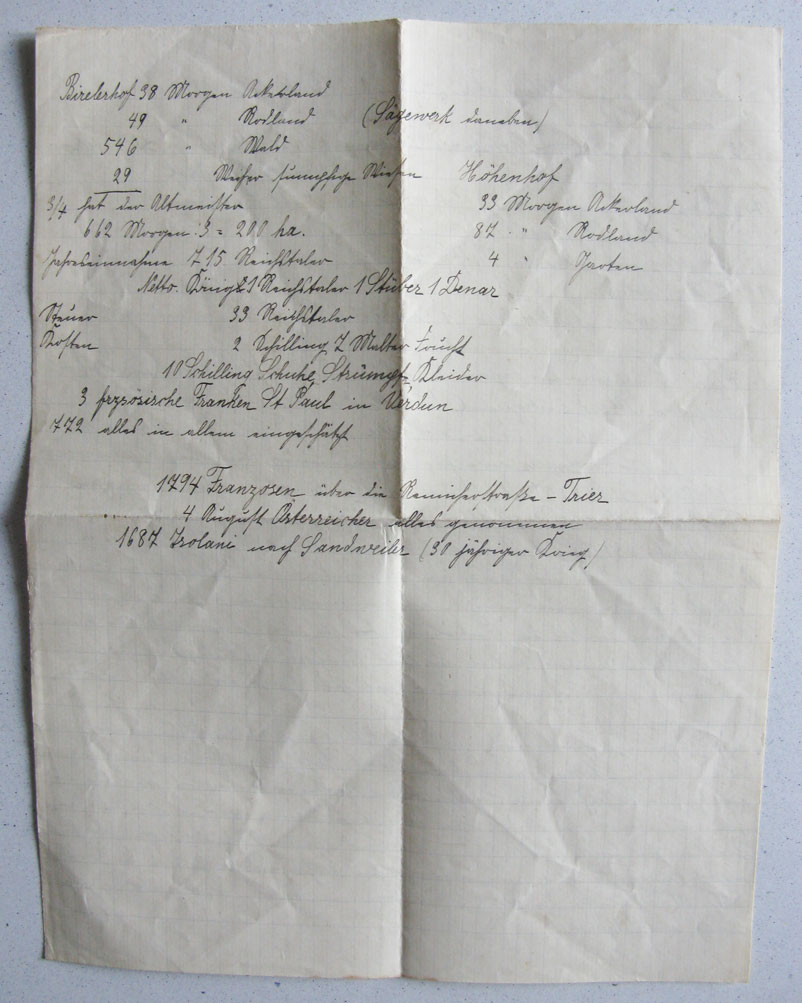 Birelerhof 38 Morgen Ackerland
49 " Rodland (Sägewerk daneben)
546 " Wald
29 Weiher sumpfige Wiesen Höhenhof
3/4 hat der Altmeister 33 Morgen Ackerland
662 Morgen : 3 = 200 ha. 87 " Rodland
Jahreseinnahme 715 Reichstaler 4 " Garten
Netto. 1 Reichstaler 1 Stüber 1 Denar
Steuer 33 Reichstaler
Kosten 2 Schilling 7 Malter Frucht
10 Schilling Schuhe, Strümpf- Kleider
3 frzösische Franken St Paul in Verdun
772 alles in allem eingeschätzt
1794 Franzosen über die Remicherstraße – Trier
4 August Österreicher alles genommen
1687 Isolani nach Sandweiler (30 jähriger Krieg)